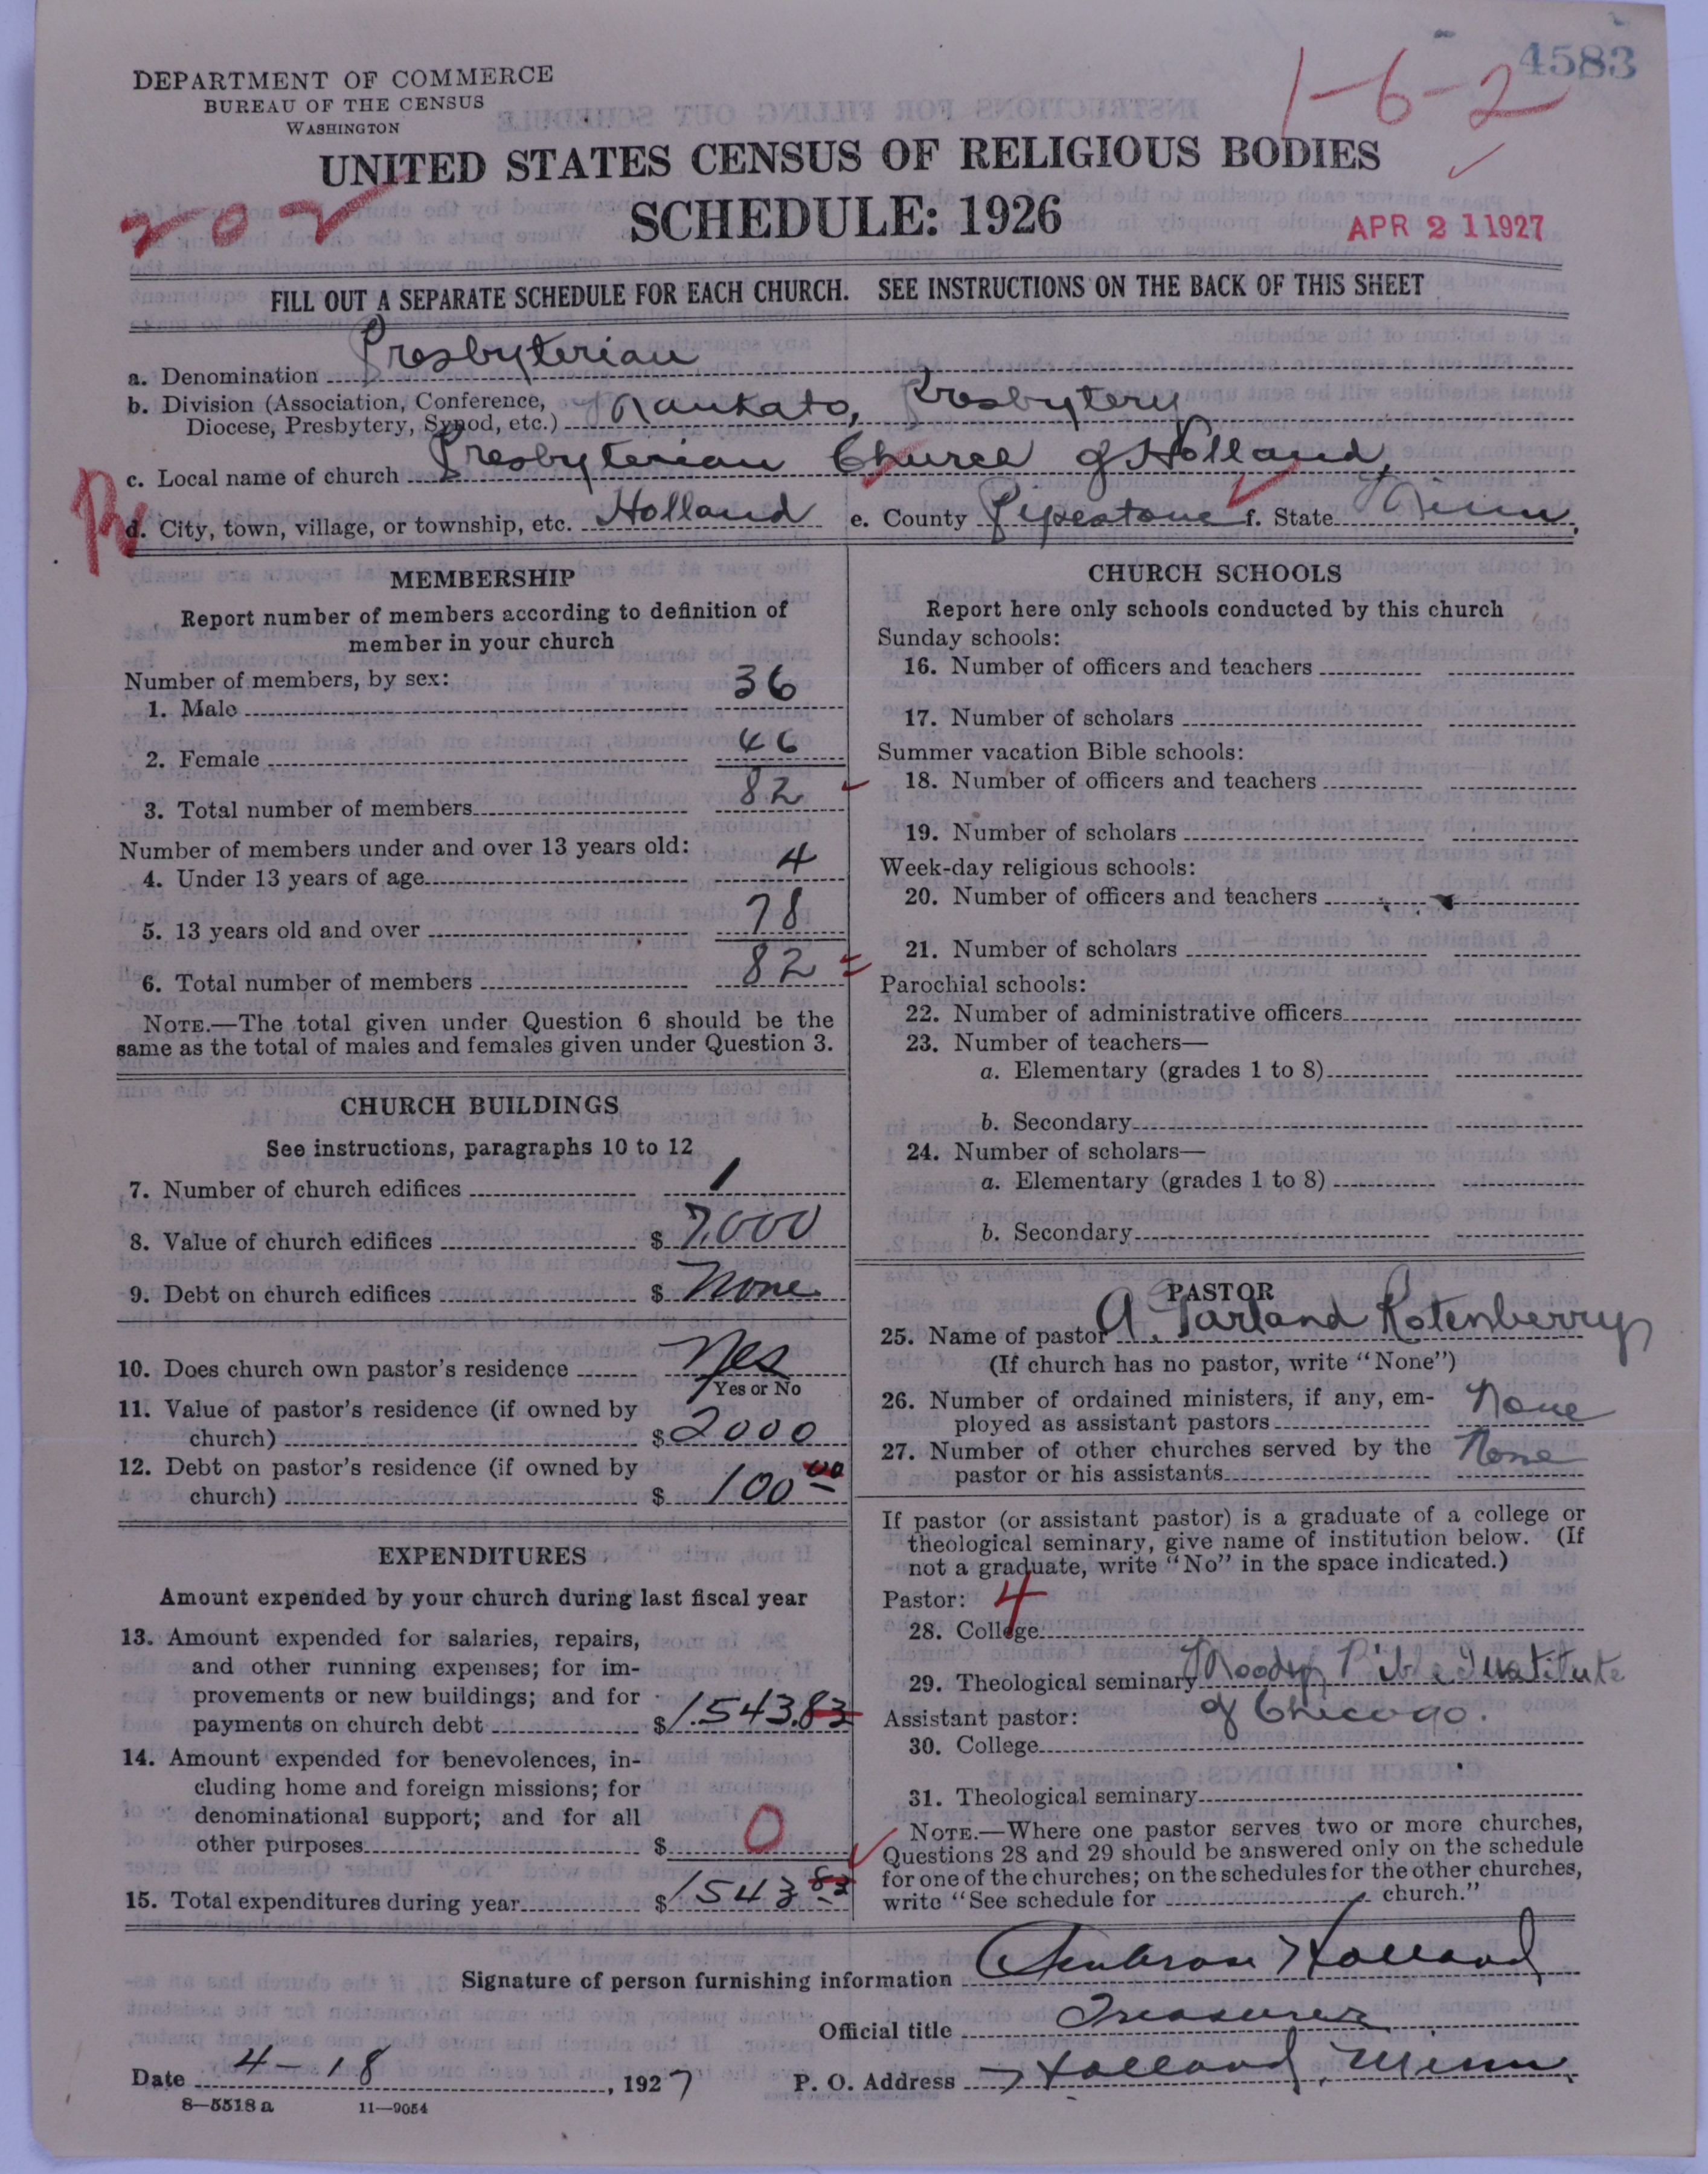 4583
1-6-2
DEPARTMENT OF COMMERCE
BUREAU OF THE CENSUS
WASHINGTON
UNITED STATES CENSUS OF RELIGIOUS BODIES
202
SCHEDULE: 1926
APR 21 1927
FILL OUT A SEPARATE SCHEDULE FOR EACH CHURCH. SEE INSTRUCTIONS ON THE BACK OF THIS SHEET
a. Denomination Presbyterian
b. Division (Association, Conference,
Diocese, Presbytery, Synod, etc.) Mankato, Presbytery
c. Local name of church Presbyterian Church of Holland,
d. City, town, village, or township, etc. Holland e. County Pipestone f. State Minn.
MEMBERSHIP
Report number of members according to definition of
member in your church
Number of members, by sex:
1. Male 36
2. Female 46
3. Total number of members 82
Number of members under and over 13 years old:
4. Under 13 years of age 4
5. 13 years old and over 78
6. Total number of members 82
NOTE.—The total given under Question 6 should be the
same as the total of males and females given under Question 3.
CHURCH BUILDINGS
See instructions, paragraphs 10 to 12
7. Number of church edifices 1
8. Value of church edifices $ 7,000
9. Debt on church edifices $ None
10. Does church own pastor's residence Yes
Yes or No
11. Value of pastor's residence (if owned by
church) $ 2000
12. Debt on pastor's residence (if owned by
church) $ 100 00
EXPENDITURES
Amount expended by your church during last fiscal year
13. Amount expended for salaries, repairs,
and other running expenses; for im-
provements or new buildings; and for
payments on church debt $ 1.543.83
14. Amount expended for benevolences, in-
cluding home and foreign missions; for
denominational support; and for all
other purposes $ 0
15. Total expenditures during year $ 1543 83
CHURCH SCHOOLS
Report here only schools conducted by this church
Sunday schools:
16. Number of officers and teachers
17. Number of scholars
Summer vacation Bible schools:
18. Number of officers and teachers
19. Number of scholars
Week-day religious schools:
20. Number of officers and teachers
21. Number of scholars
Parochial schools:
22. Number of administrative officers
23. Number of teachers—
a. Elementary (grades 1 to 8)
b. Secondary
24. Number of scholars—
a. Elementary (grades 1 to 8)
b. Secondary
PASTOR
25. Name of pastor A. Tarland Rotenberry
(If church has no pastor, write "None")
26. Number of ordained ministers, if any, em-
ployed as assistant pastors None
27. Number of other churches served by the
pastor or his assistants None
If pastor (or assistant pastor) is a graduate of a college or
theological seminary, give name of institution below. (If
not a graduate, write "No" in the space indicated.)
Pastor: 4
28. College
29. Theological seminary Moody Bible Institute
of Chicago.
Assistant pastor:
30. College
31. Theological seminary
NOTE.—Where one pastor serves two or more churches,
Questions 28 and 29 should be answered only on the schedule
for one of the churches; on the schedules for the other churches,
write "See schedule for church."
Signature of person furnishing information Ambrose Holland
Official title Treasurer
Date 4-18, 1927 P. O. Address Holland, Minn.
8—5518 a 11—9054